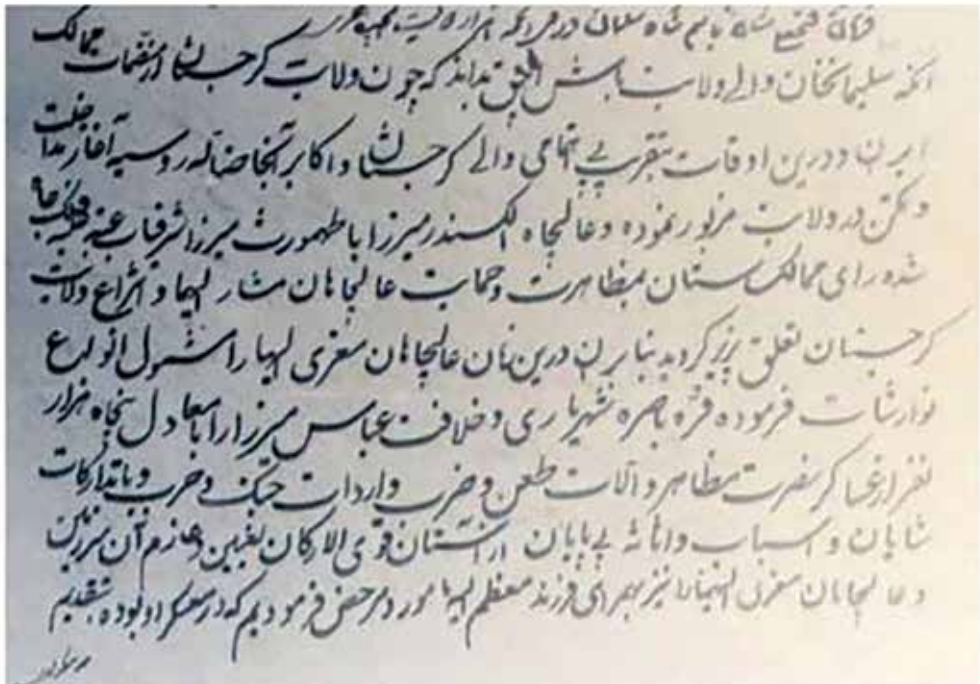 فرمان فتحعلی شاه بنام شاه سلمان در
آنکه سلیمانخان والی ولایت باش آچق بداند که چون ولایت گرجستان از متضمات ممالک
ایران و درین اوقات بتقریب بی اهتمامی والی گرجستان و اکابر آنجا ضاله روسیه آغاز مداخلت
و تمکن در ولایت مزبور نموده و عالیجاه الکسندر میرزا با طهمورث میرزا شرفیاب عتبه فلک
شده رای ممالک ستان بمظاهرت و حمایت عالیجاهان مشار الیها و انتزاع ولایت
گرجستان تعلق پزیر گردید بنابرین درین زمان عالیجاهان معزی الیها را شمول انواع
نوازشات فرموده قره باصره شهریاری و خلافت عباس میرزا را با معادل پنجاه هزار
نفر از عساکر نصرت مظاهر و آلات طعن و ضرب و ادوات جنگ و حرب و با تدارکات
شایان و اسباب و اثاثه بی پایان از آستان قوی الارکان تعیین و عازم آن سرزمین
و عالیجاهان معزی الیهما را نیز بهمراهی فرزند معظم الیها مور و مرخص فرمودیم که در معسکر او بوده بتقدیم